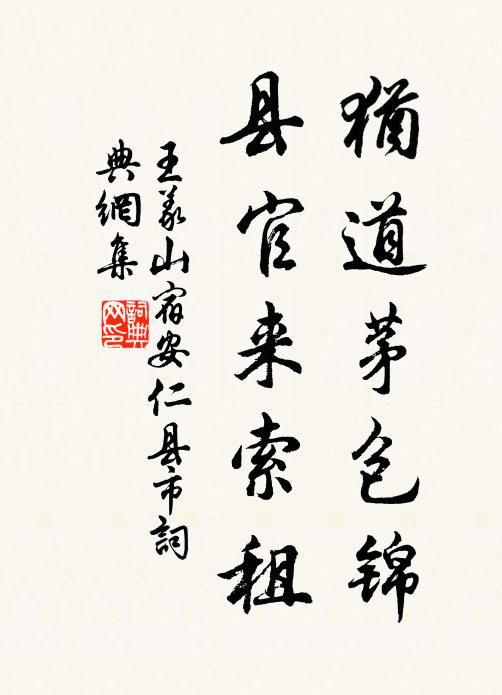 猶道茅包锦
县官来索租
王义山宿安仁县市詞
典網集
詞典
网印